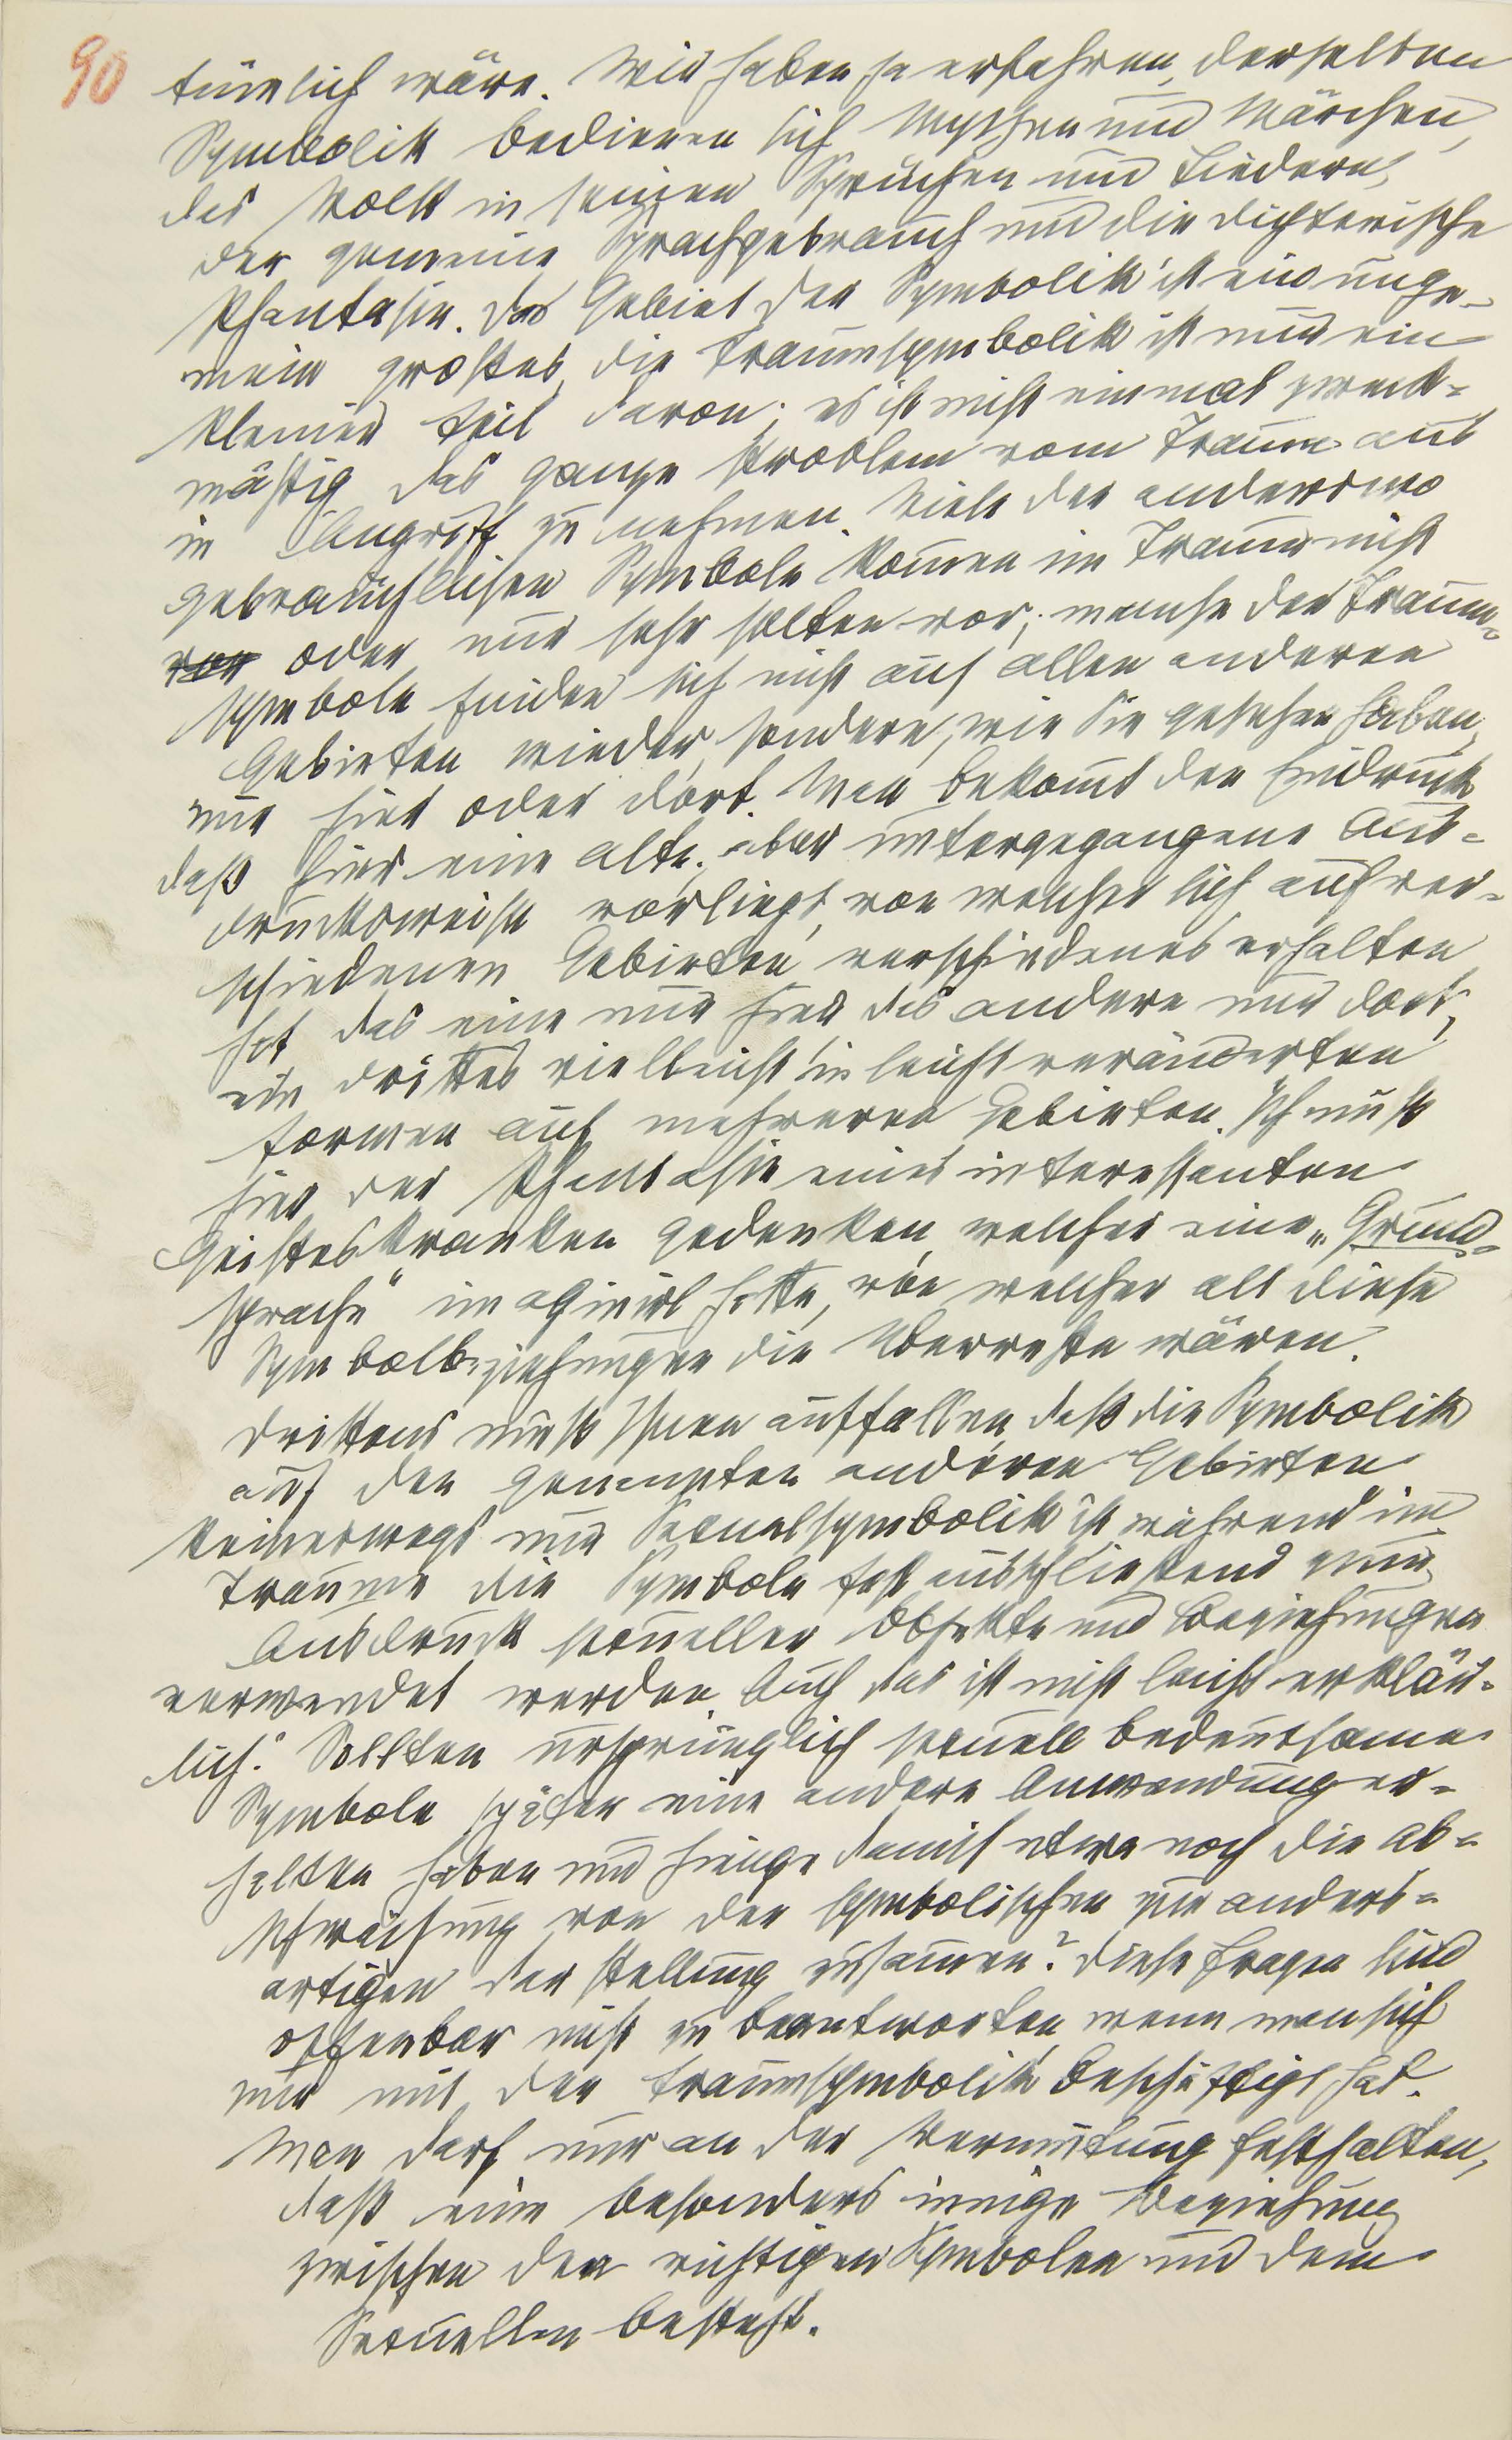 90
tümlich wäre. Wir haben ja erfahren, derselben
Symbolik bedienen sich Mythen und Märchen,
das Volk in seinen Sprüchen und Liedern,
der gemeine Sprachgebrauch und die dichterische
Phantasie. Das Gebiet der Symbolik ist ein unge-
mein großes, die Traumsymbolik ist nur ein
kleiner Teil davon; es ist nicht einmal zweck-
mäßig, das ganze Problem vom Traum aus
in Angriff zu nehmen. Viele der anderswo
gebräuchlichen Symbole kommen im Traum nicht
vor oder nur sehr selten vor; manche der Traum-
symbole finden sich nicht auf allen anderen
Gebieten wieder, sondern, wie Sie gesehen haben,
nur hier oder dort. Man bekommt den Eindruck,
daß hier eine alte, aber untergegangene Aus-
drucksweise vorliegt, von welcher sich auf ver-
schiedenen Gebieten verschiedenes erhalten
hat, das eine nur hier, das andere nur dort,
ein drittes vielleicht in leicht veränderten
Formen auf mehreren Gebieten. Ich muß
hier der Phantasie eines interessanten
Geisteskranken gedenken, welcher eine „Grund-
sprache“ imaginirt hatte, von welcher all diese
Symbolbeziehungen die Überreste wären.
Drittens muß Ihnen auffallen, daß die Symbolik
auf den genannten anderen Gebieten
keineswegs nur Sexualsymbolik ist, während im
Traume die Symbole fast ausschließend zum
Ausdruck sexueller Objekte und Beziehungen
verwendet werden. Auch das ist nicht leicht erklär-
lich. Sollten ursprünglich sexuell bedeutsame
Symbole später eine andere Anwendung er-
halten haben und hinge damit etwa noch die Ab-
schwächung von der symbolischen zur anders-
artigen Darstellung zusammen? Diese Fragen sind
offenbar nicht zu beantworten, wenn man sich
nur mit der Traumsymbolik beschäftigt hat.
Man darf nur an der Vermutung festhalten,
daß eine besonders innige Beziehung
zwischen den richtigen Symbolen und dem
Sexuellen besteht.